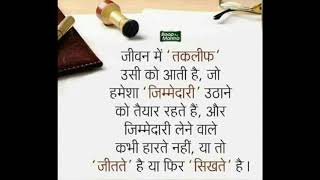 Roop
Mahina
जीवन में ‘तकलीफ’
उसी को आती है, जो
हमेशा ‘जिम्मेदारी’ उठाने
को तैयार रहते हैं, और
जिम्मेदारी लेने वाले
कभी हारते नहीं, या तो
‘जीतते’ है या फिर ‘सिखते’ है।